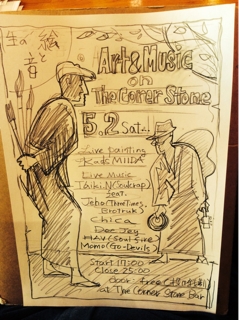 生の絵と音
Art & Music
on
The Corer Stone
5.2 Sat.
Live painting
Kads MIIDA
Live Music
Taiki N (Soulcrap)
feat.
Jebo (ThreeTimes,
BroTruk)
Chica
Dee Jey
HAV (Soul fire)
Momo (Go-Devils)
Start 17:00
Close 25:00
Door: free
at The Corner Stone Bar